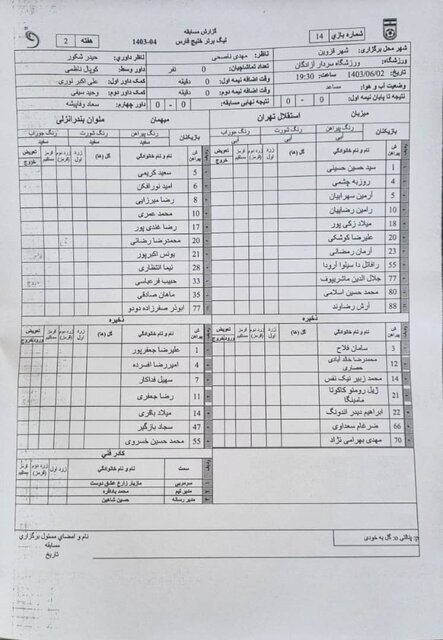 گزارش مسابقه
شماره بازی 14
لیگ برتر خلیج فارس 04-1403
هفته 2
شهر محل برگزاری: شهر قزوین
ناظر: مهدی ناصحی
ناظر داوری: حیدر شکور
ورزشگاه: ورزشگاه سردار آزادگان
تعداد تماشاچیان: 0 نفر
داور وسط: کوپال ناظمی
تاریخ: 1403/06/02 ساعت: 19:30
وقت اضافه نیمه اول: 0 دقیقه
کمک داور اول: علی اکبر نوری
وضعیت آب و هوا: مساعد
وقت اضافه نیمه دوم: 0 دقیقه
کمک داور دوم: وحید سیفی
نتیجه تا پایان نیمه اول: 0 - 0
نتیجه نهایی مسابقه: 0 - 0
داور چهارم:
میزبان استقلال تهران
میهمان ملوان بندرانزلی
بازیکنان
رنگ پیراهن رنگ شورت رنگ جوراب
آبی آبی آبی
بازیکنان
رنگ پیراهن رنگ شورت رنگ جوراب
سفید سفید سفید
ش پیراهن نام و نام خانوادگی گل (ها)
1 سید حسین حسینی
4 روزبه چشمی
5 آرمین سهرابیان
10 رامین رضاییان
18 میلاد زکی پور
20 علیرضا کوشکی
23 آرمان رمضانی
55 رافائل دا سیلوا آرودا
77 جلال الدین ماشریپوف
80 محمد حسین اسلامی
88 آرش رضاوند
ش پیراهن نام و نام خانوادگی گل (ها)
5 سعید کریمی
6 امید نورافکن
8 رضا میرزایی
10 محمد عمری
17 رضا غندی پور
20 محمدرضا رضائی
21 یونس اکبرپور
28 نیما انتظاری
33 حبیب فرعباسی
35 ماهان صادقی
77 ابوذر صفرزاده دودو
ذخیره
3 سامان فلاح
12 محمدرضا خالد آبادی حصاری
14 محمد زبیر نیک نفس
21 ژیل رومئو کاکوتا مامینگا
22 ابراهیم دیدر اندونگ
66 ضرغام سعداوی
70 مهدی بهرامی نژاد
ذخیره
1 علیرضا جعفرپور
4 امیررضا افسرده
7 سهیل فداکار
11 رضا جعفری
14 میلاد باقری
47 سجاد بازگیر
55 محمد حسین خسروی
کادر فنی
سمت نام و نام خانوادگی
1 سرمربی مازیار زارع عشق دوست
2 مدیر تیم
3 مدیر رسانه حسین شاهین
p: پنالتی o: گل به خودی
نام و امضای مسئول برگزاری
مسابقه
تاریخ